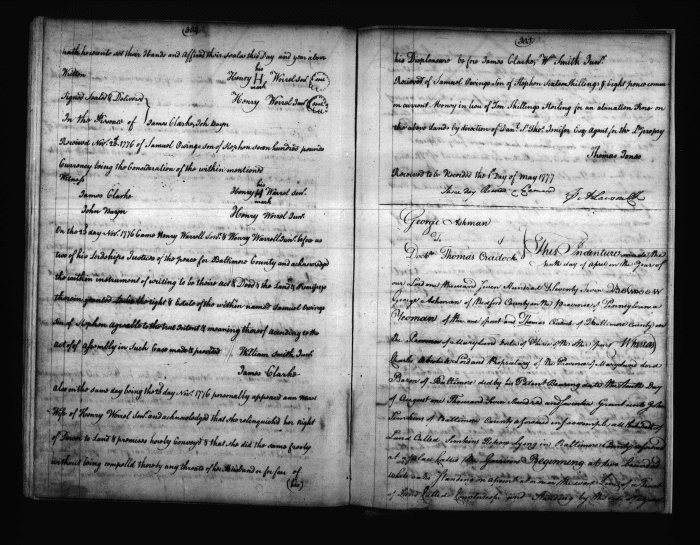 (302)
hath hereunto set their Hands and Affixed their Seales this Day and year above
Written
his
Henry H Worrel Senr (Seal)
mark
Henry Worrel Junr (Seal)
Signed Seald & Delivered
In the Presence of James Clarke, Joh Wayn
Received Novr 23d 1776 of Samuel Owings son of Stephen seven hundred pounds
Currency being the Consideration of the within mentioned
Witness
his
James Clarke Henry H Worrel Senr
mark
John Wayn Henry Worrel Junr
On the 23d day Novr 1776 Came Henry Worrell Senr & Henry Worrell Junr before us
two of his Lordships Justices of the peace for Baltimore County and acknowledged
the within instrument of writing to be their act & Deed & the Land & Premises
therein granted to be the right & Estate of the within named Samuel Owings
Son of Stephen agreeable to the true intent & meaning thereof according to the
act of Assembly in Such Case made & provided William Smith Junr
James Clarke
also on the same day being the 23d day Novr 1776 personally appeard
Wife of Henry Worrel Senr and acknowledged that she relinquished her right
of Dower to Land & premises hereby Conveyed & that she did the same freely
without being compelld thereby any threats of her Husband or for fear of
(his)
(303)
his Displeasure before James Clarke, Wm Smith Junr
Received of Samuel Owings son of Stephen Sixteen Shillings & Eight pence comm
on current Money in lieu of Ten Shillings Sterling for an alienation Fine on
the above Lands by direction of Danl St Thos Jenifer Esqr Agent for the Ld propry
Thomas Jones
Received to be Recorded the 6th Day of May 1777
Same day Recorded & Examined
George Ashman
To
Doctr Thomas Cradock
This Indenture made the
tenth day of April in the Year of
our Lord one thousand Seven Hundred & Seventy Seven Between
George Ashman of Bedford County in the Province of Pennsylvania
Yeoman of the one part and Thomas Cradock of Baltimore County in
the Province of Maryland Doctor of Physic of the other part Whereas
Charles Absolute Lord and Proprietary of the Province of Maryland Lord
Baron of Baltimore did by his Patent Bearing date the Tenth Day
of August one Thousand Seven Hundred and Grant unto
of Baltimore County aforesaid in fee simple all that Tract
Land Called Lying in Baltimore County aforesd
at a place called the Garrison Beginning at two Bounded
White oaks Standing on a point at or near the east Line of a Tract
of Land Called and Running by the